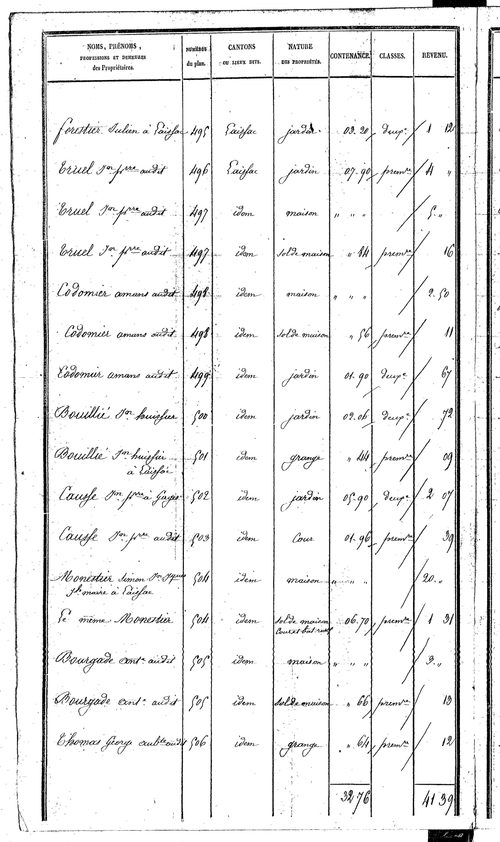 NOMS, PRÉNOMS, PROFESSIONS ET DEMEURES des Propriétaires. NUMÉROS du plan. CANTONS OU LIEUX DITS. NATURE DES PROPRIÉTÉS. CONTENANCE. CLASSES. REVENU.
forestier Julien à Laissac 495 Laissac jardin 03.20 deuxe 1 12
Jn pre audit 496 Laissac jardin 07.90 premre 4 "
Jn pre audit 497 idem maison " " " 5 "
Jn pre audit 497 idem sol de maison " 84 premre 16
Codomier amans audit 498 idem maison " " " 2.50
Codomier amans audit 498 idem sol de maison " 56 premre 11
Codomier amans audit 499 idem jardin 01.90 deuxe 67
Bouillié Jn huissier 500 idem jardin 02.06 deuxe 72
Bouillié Jn huissier 501 idem grange " 44 premre 09
à Laissac
Causse Jn pre à 502 idem jardin 05.90 deuxe 2 07
Causse Jn pre audit 503 idem Cour 01.96 premre 39
Monestier Simon Jn Jques 504 idem maison " " " 20 "
maire à Laissac
Le même Monestier 504 idem sol de maison 06.70 premre 1 31
Bourgade ant. audit 505 idem maison " " " 3 "
Bourgade ant. audit 505 idem sol de maison " 66 premre 13
Thomas George audit 506 idem grange " 64 premre 12
32 76 41 39